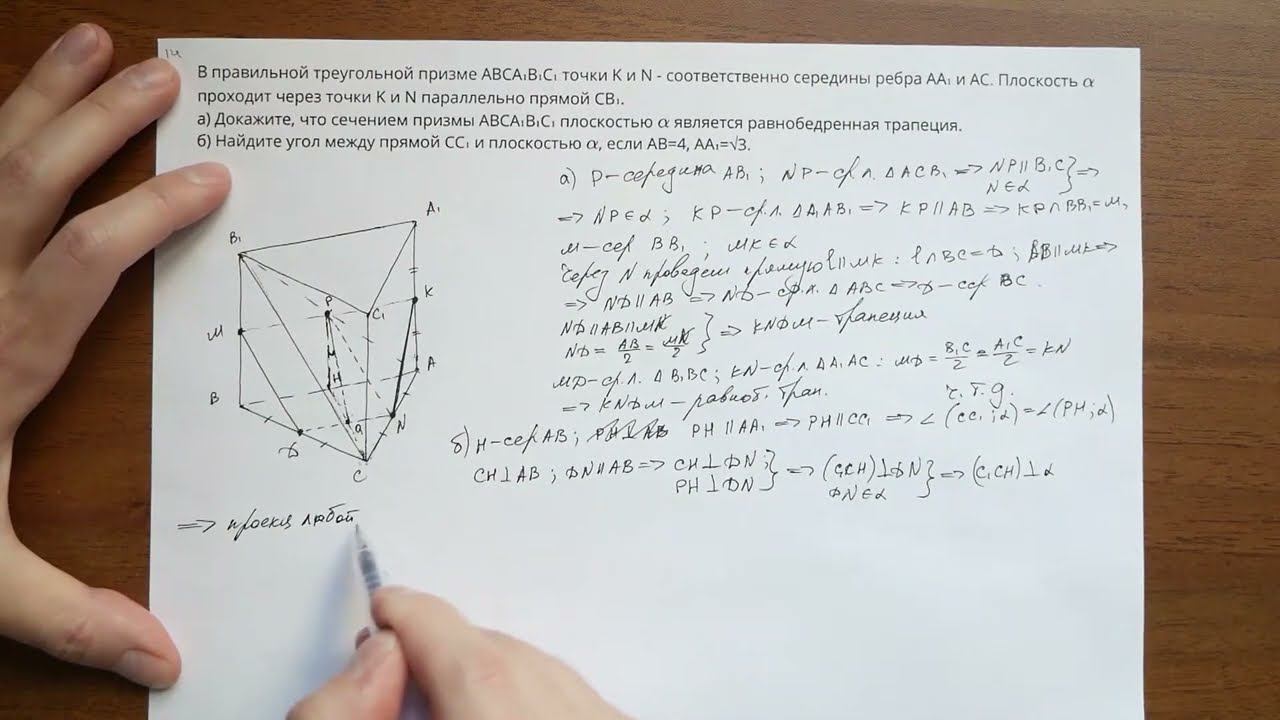 14
В правильной треугольной призме ABCA₁B₁C₁ точки K и N - соответственно середины ребра AA₁ и AC. Плоскость α
проходит через точки K и N параллельно прямой CB₁.
а) Докажите, что сечением призмы ABCA₁B₁C₁ плоскостью α является равнобедренная трапеция.
б) Найдите угол между прямой CC₁ и плоскостью α, если AB=4, AA₁=√3.
а) P-середина AB₁ ; NP-ср.л. ΔACB₁ ⇒ NP∥B₁C } ⇒
N∈α
⇒ NP∈α ; KP-ср.л. ΔA₁AB₁ ⇒ KP∥AB ⇒ KP∩BB₁=M,
M-сер BB₁ ; MK∈α
Через N проведем прямую l∥MK : l∩BC=D ; AB∥MK⇒
⇒ ND∥AB ⇒ ND-ср.л. ΔABC ⇒ D-сер BC.
ND∥AB∥MK
ND = AB/2 = MK/2 } ⇒ KNDM-трапеция
MD-ср.л. ΔB₁BC ; KN-ср.л. ΔA₁AC : MD = B₁C/2 = A₁C/2 = KN
⇒ KNDM-равноб. трап. ч.т.д.
б) H-сер AB ; PH⊥AB PH∥AA₁ ⇒ PH∥CC₁ ⇒ ∠(CC₁;α)=∠(PH;α)
CH⊥AB ; DN∥AB ⇒ CH⊥DN ; } ⇒ (C₁CH)⊥DN } ⇒ (C₁CH)⊥α
PH⊥DN DN∈α
⇒ проекц любой
A₁
B₁
P
C₁
K
M
H
A
B
Q
N
D
C